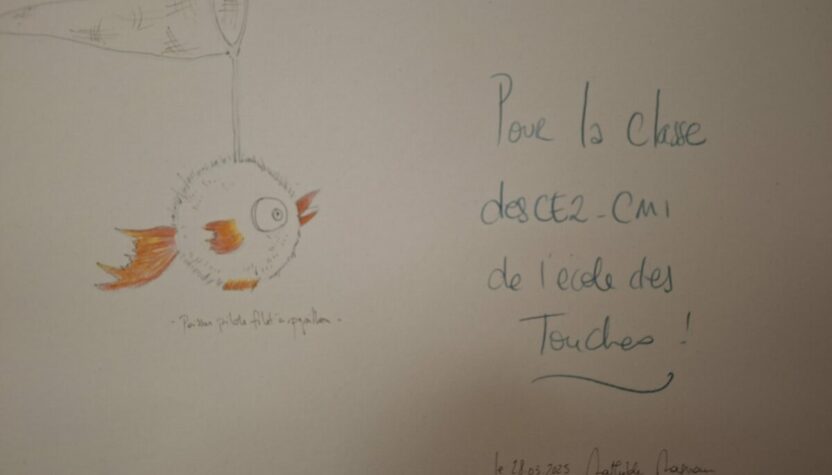 Pour la classe
des CE2-CM1
de l'école des
Touches !
- Poisson pilote filet à papillon -
le 28.03.2025 Mathilde